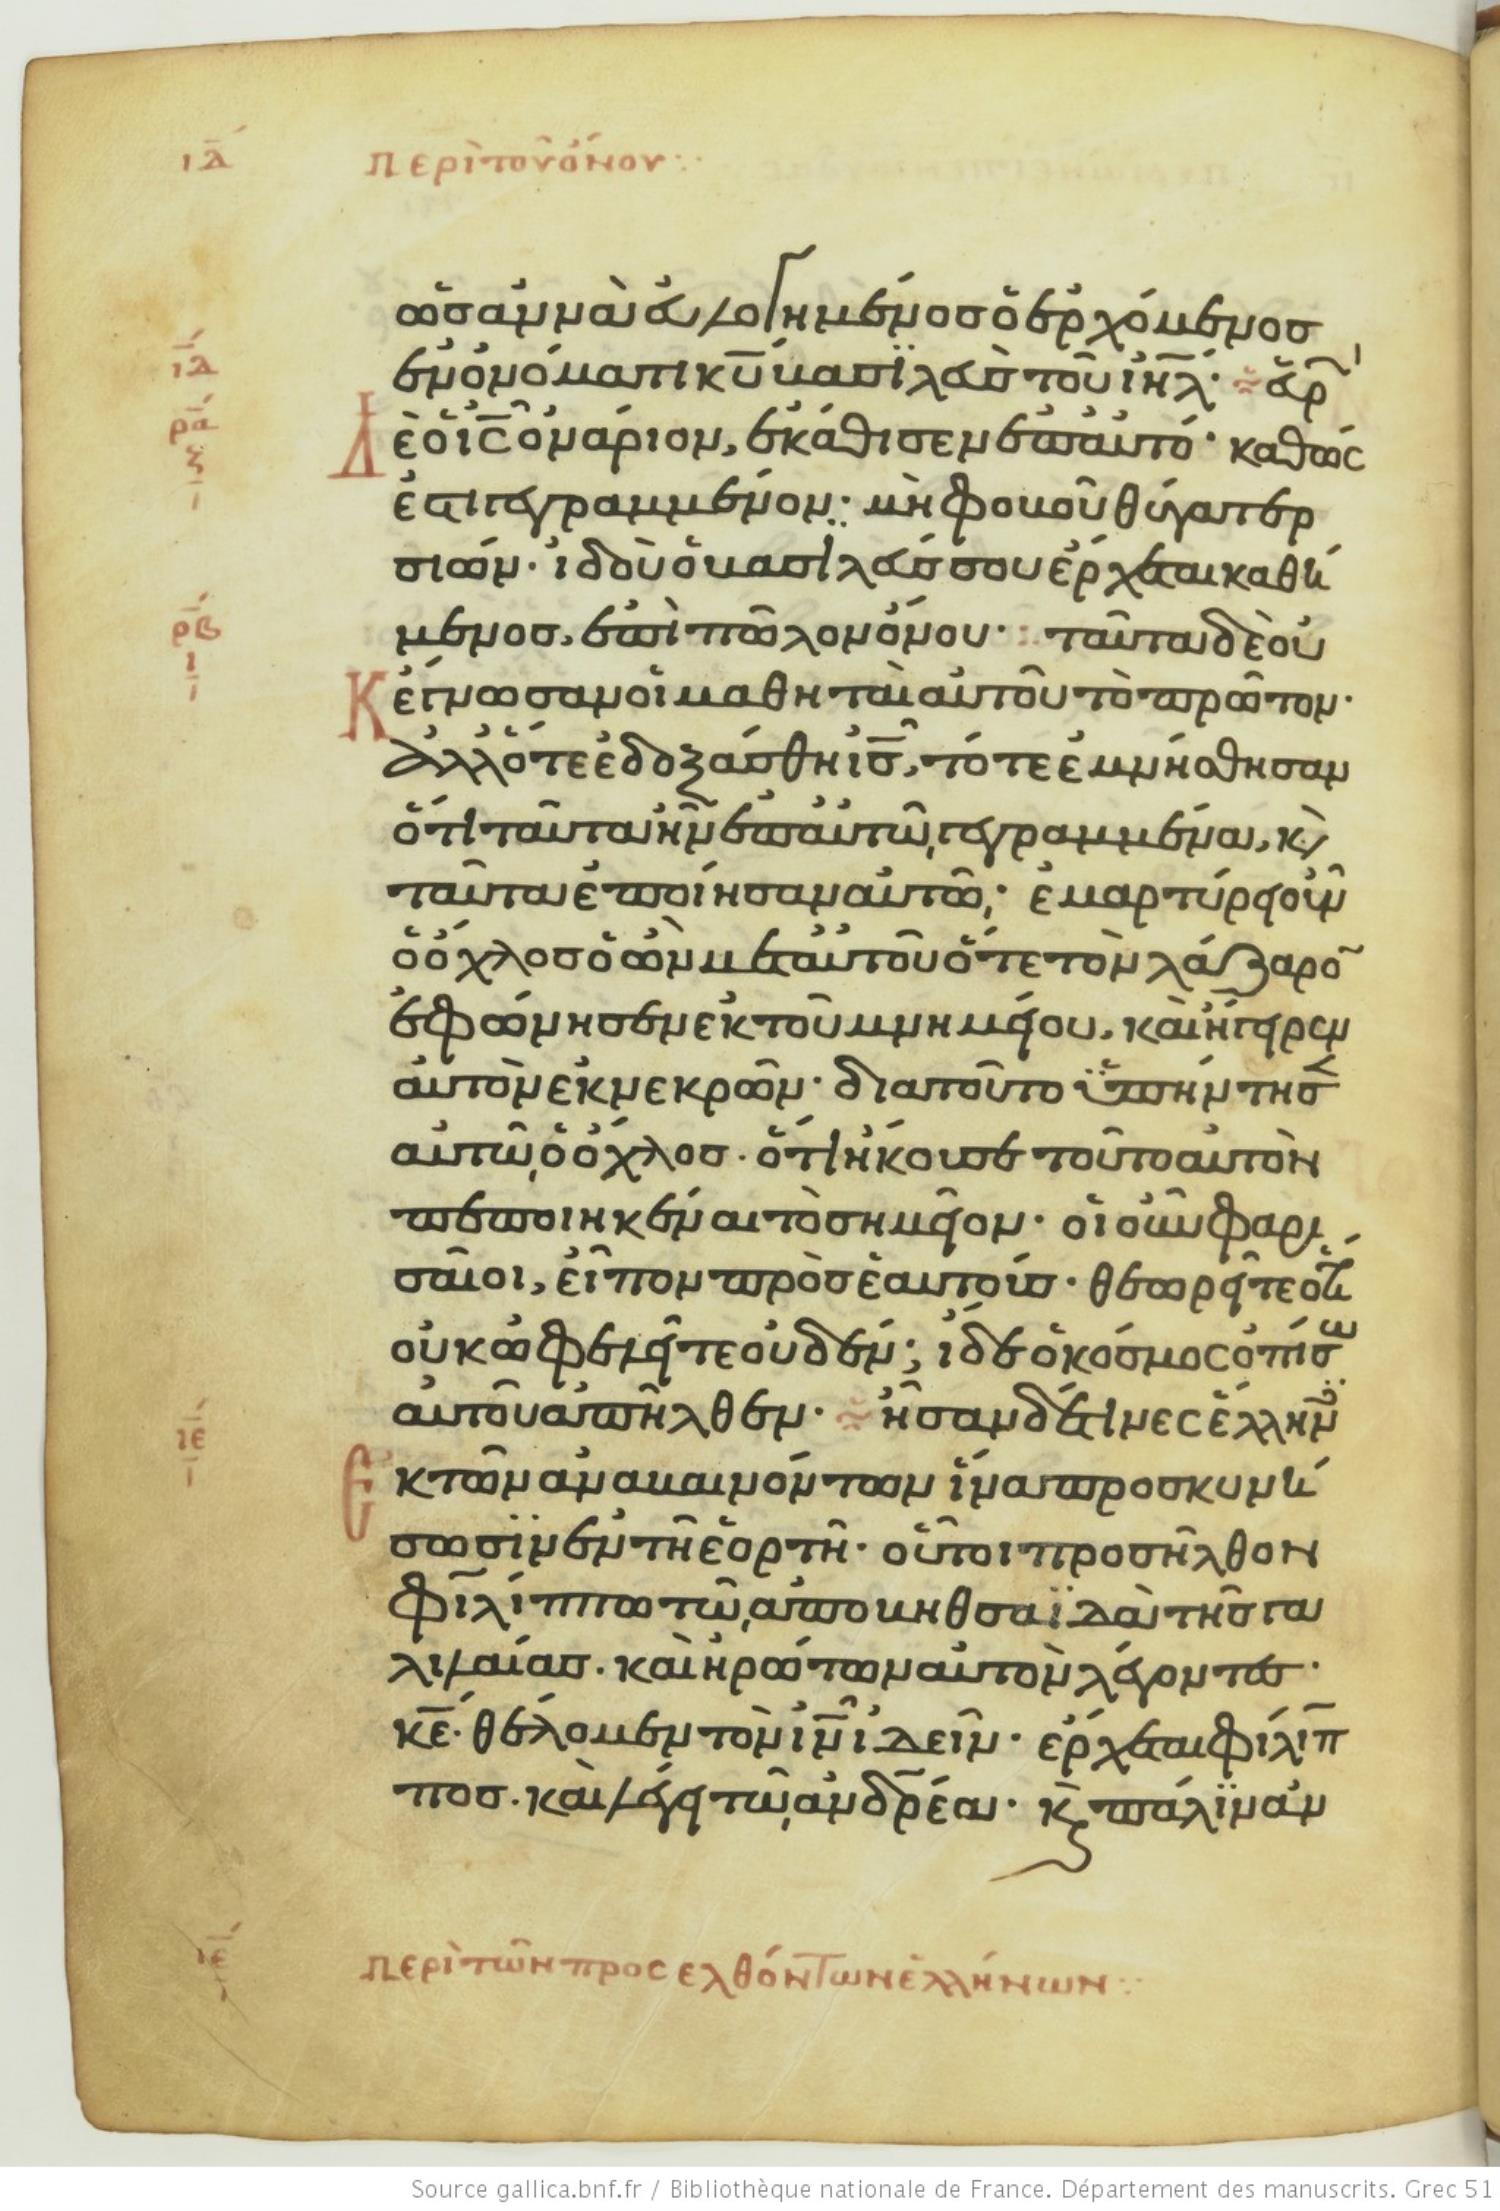 ιδ περὶ τοῦ ὄνου
ὡσαννὰ εὐλογημένος ὁ ἐρχόμενος
ιδ ἐν ὀνόματι κ̅υ̅ βασϊλεὺς τοῦ ἰη̅λ̅· εὑρ
ρα ξ Δὲ ὁ ι̅ς̅ ὀνάριον, ἐκάθισεν ἐπ αὐτό· καθὼς
ἐστι γεγραμμένον· μὴ φοβοῦ θύγατερ
σιών· ἰδοὺ ὁ βασιλεύς σου ἔρχεται καθή
ρβ ι μενος, ἐπὶ πῶλον ὄνου· ταῦτα δὲ οὐ
Κ ἔγνωσαν οἱ μαθηταὶ αὐτοῦ τὸ πρῶτον·
ἀλλ ὅτε ἐδοξάσθη ι̅ς̅, τότε ἐμνήσθησαν
ὅτι ταῦτα ἦν ἐπ αὐτῶ γεγραμμένα, κ
ταῦτα ἐποίησαν αὐτῶ· ἐμαρτύρει οὖν
ὁ ὄχλος ὁ ὢν μετ αὐτοῦ ὅτε τὸν λάζαρο
ἐφώνησεν ἐκ τοῦ μνημείου, καὶ ἤγειρεν
αὐτὸν ἐκ νεκρῶν· δια τοῦτο ϋπήντησε
αὐτῶ ὁ ὄχλος· ὅτι ἤκουσε τοῦτο αὐτὸν
πεποιηκέναι τὸ σημεῖον· οἱ οὖν φαρι
σαῖοι, εἶπον πρὸς ἑαυτούς· θεωρεῖτε ὅτι
οὐκ ὠφελεῖτε οὐδέν; ἴδε ὁ κόσμος ὀπίσω
αὐτοῦ ἀπῆλθεν· ἦσαν δέ τινες ἕλλην
ιε Ε κ τῶν ἀναβαινόντων ἵνα προσκυνή
σωσϊν ἐν τῆ ἑορτῆ· οὗτοι προσῆλθον
φιλίππω τῶ ἀπο βηθσαϊδὰ τῆς γα
λιλαίας· καὶ ἠρώτων αὐτὸν λέγοντες·
κ̅ε̅· θέλομεν τὸν ι̅ν̅ ἰδεῖν· ἔρχεται φίλιπ
πος· καὶ λέγει τῶ ἀνδρέα· κ πάλϊν ἀν
ιε περὶ τῶν προσελθόντων ἑλλήνων
Source gallica.bnf.fr / Bibliothèque nationale de France. Département des manuscrits. Grec 51